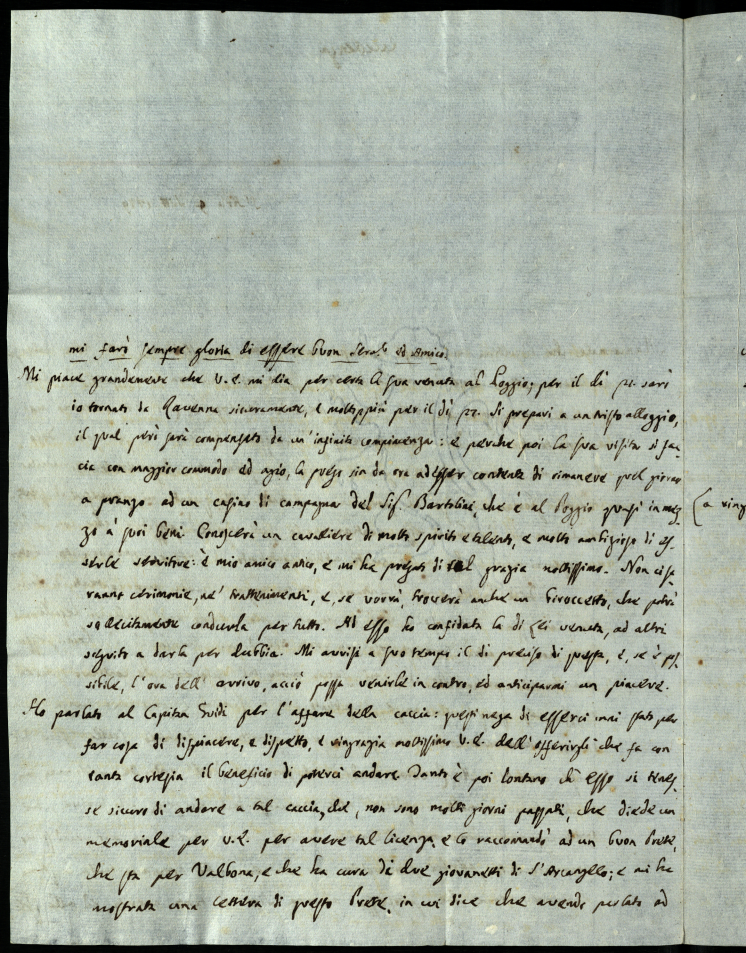 mi farò sempre gloria di essere buon Serv.e ed Amico.
Mi piace grandemente che V. E. mi dia per certa la sua venuta al Poggio; per il dì 21. sarò
io tornato da Ravenna sicuramente, e moltoppiù per il dì 22. Si prepari a un tristo alloggio,
il qual però sarà compensato da un' infinita compiacenza: e perche poi la sua visita si fac-
cia con maggior commodo ed agio, la prego sin da ora ad esser contenta di rimanere quel giorno
a pranzo ad un casino di campagna del Sig. Bartolini, che è al Poggio quasi in mez-
zo a' suoi beni. Conoscerà un cavaliere di molto spirito e talento, e molto ambizioso di es-
serle servitore: è mio amico antico, e mi ha pregato di tal grazia moltissimo. Non ci sa-
ranno cerimonie, ne' trattenimenti, e, se vorrà, troverà anche un biroccetto, che potrà
sollecitamente condurla per tutto. Ad esso ho confidata la di Lei venuta, ad altri
seguito a darla per dubbia. Mi avvisi a suo tempo il dì preciso di questa, e, se è pos-
sibile, l'ora dell' arrivo, acciò possa venirle in contro, ed anticiparmi un piacere.
Ho parlato al Capitan Guidi per l'affare della caccia: questi nega di esserci mai stato per
far cosa di dispiacere, e dispetto, e ringrazia moltissimo V. E. dell' offerirgli che fa con
tanta cortesia il beneficio di poterci andare. Tanto è poi lontano ch' esso si tenes-
se sicuro di andare a tal caccia, che, non sono molti giorni passati, che diede un
memoriale per V. E. per avere tal licenza, e lo raccomandò ad un buon Prete,
che sta per Valbona, e che ha cura di due giovanetti di S. Arcangelo; e mi ha
mostrata una lettera di questo Prete, in cui dice che avendo parlato ad
(a ring